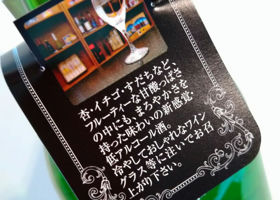 杏・イチゴ・すだちなど、
フルーティーな甘酸っぱさ
の中にも、まろやかさを
持った味わいの新感覚・
低アルコール酒。
冷やしておしゃれなワイン
グラス等に注いでお召
上がり下さい。